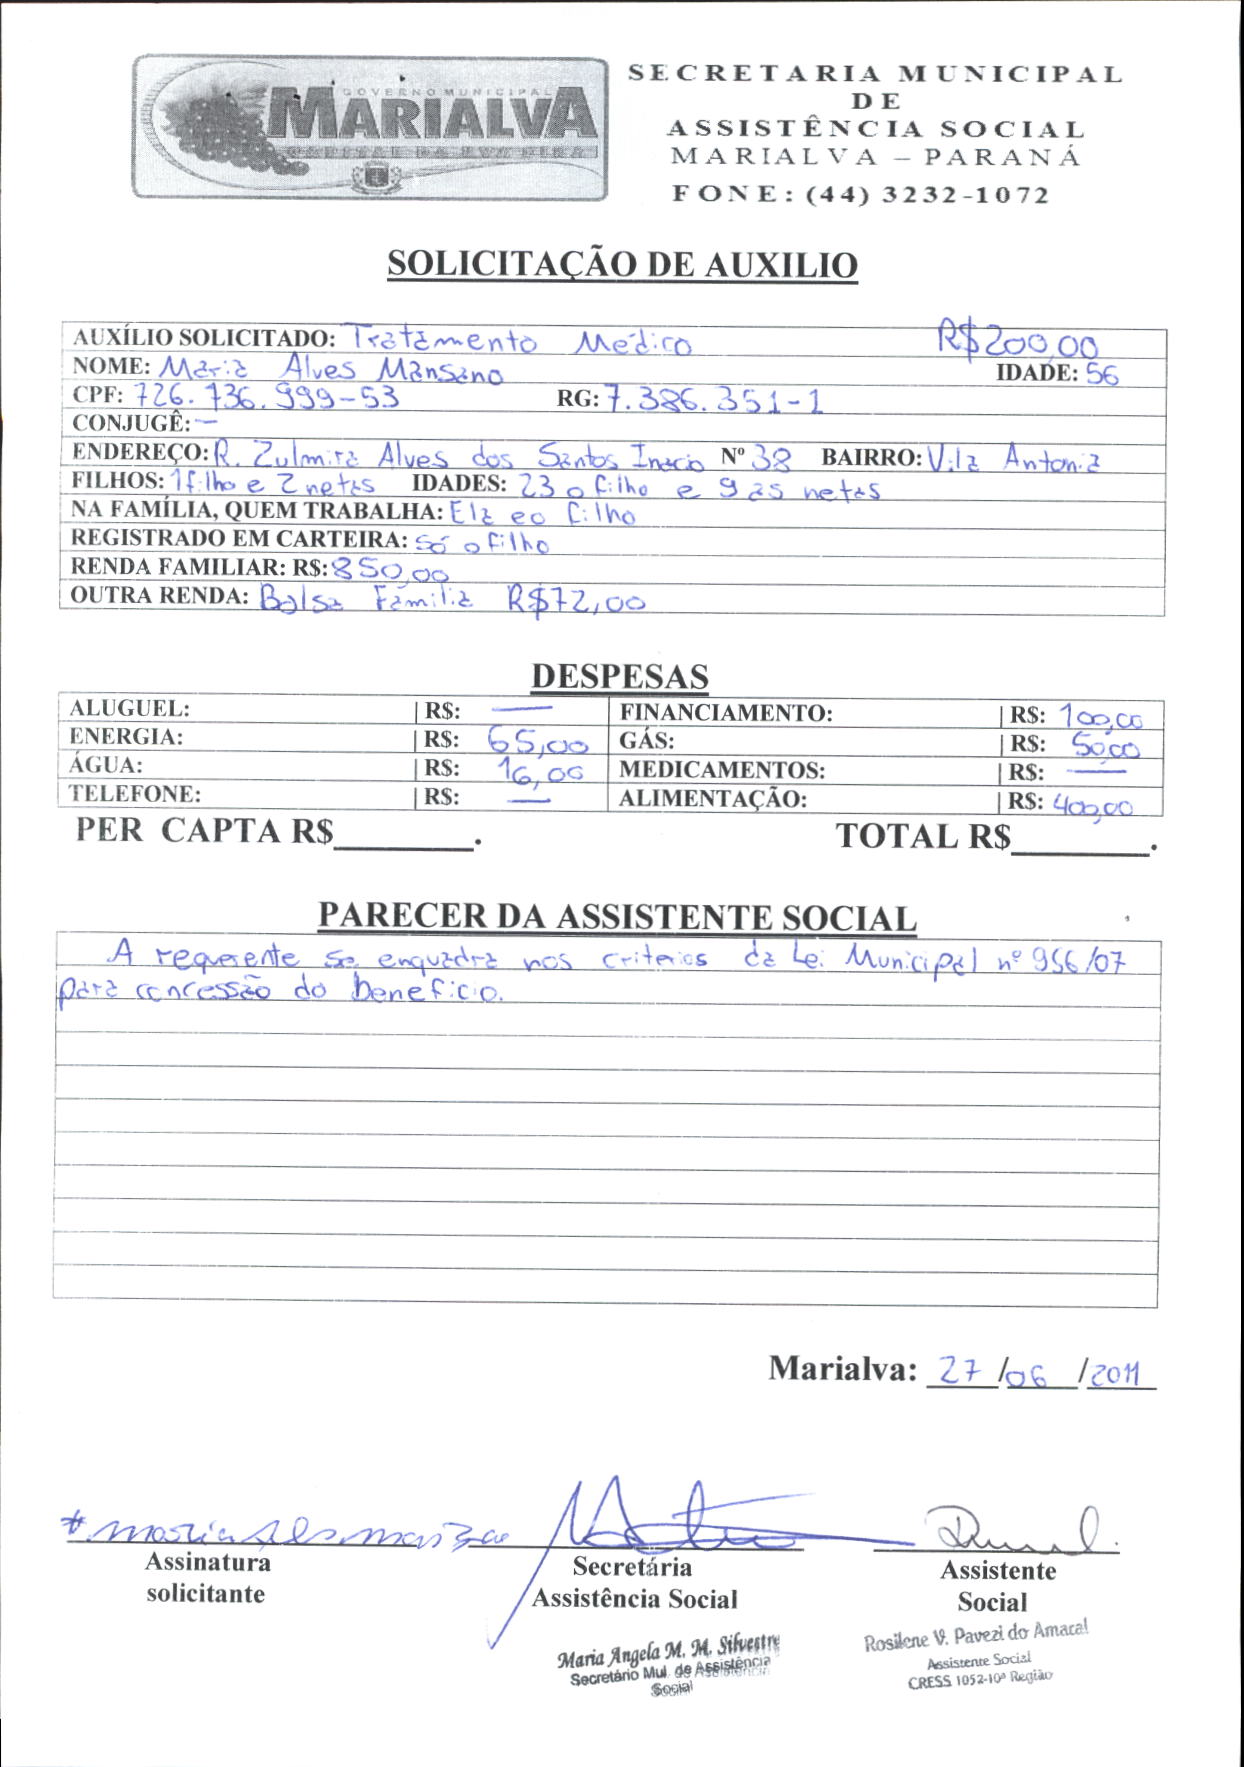 GOVERNO MUNICIPAL
MARIALVA
CAPITAL DA UVA FINA
SECRETARIA MUNICIPAL
DE
ASSISTÊNCIA SOCIAL
MARIALVA – PARANÁ
FONE: (44) 3232-1072
SOLICITAÇÃO DE AUXILIO
AUXÍLIO SOLICITADO: Tratamento Médico R$200,00
NOME: Maria Alves Mansano IDADE: 56
CPF: 726.736.999-53 RG: 7.386.351-1
CONJUGÊ: —
ENDEREÇO: R. Zulmira Alves dos Santos Inacio Nº 38 BAIRRO: Vila Antonia
FILHOS: 1 filho e 2 netas IDADES: 23 o filho e 9 as netas
NA FAMÍLIA, QUEM TRABALHA: Ela e o filho
REGISTRADO EM CARTEIRA: só o filho
RENDA FAMILIAR: R$: 850,00
OUTRA RENDA: Bolsa Família R$72,00
DESPESAS
ALUGUEL: | R$: — FINANCIAMENTO: | R$: 100,00
ENERGIA: | R$: 65,00 GÁS: | R$: 50,00
ÁGUA: | R$: 16,00 MEDICAMENTOS: | R$: —
TELEFONE: | R$: — ALIMENTAÇÃO: | R$: 400,00
PER CAPTA R$________. TOTAL R$________.
PARECER DA ASSISTENTE SOCIAL
A requerente se enquadra nos criterios da Lei Municipal nº 956/07
para concessão do beneficio.
Marialva: 27/06/2011
Assinatura
solicitante
Secretária
Assistência Social
Assistente
Social
Maria Angela M. M. Silvestre
Secretário Mul. de Assistência
Social
Rosilene V. Pavezi do Amaral
Assistente Social
CRESS 1052-10ª Região